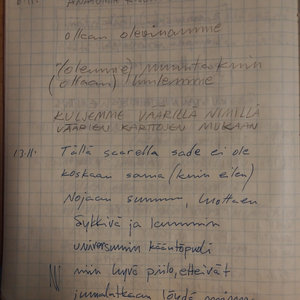 ollaan olevinamme
(olemme) muuntaskuin
(ollaan) luulemme
KULJEMME VÄÄRILLÄ NIMILLÄ
VÄÄRIEN KARTTOJEN MUKAAN
13.11. Tällä saarella sade ei ole
koskaan sama (kuin eilen)
Nojaan
Sykkivä ja kummin
universumin kääntöpuoli
N niin hyvä piilo, etteivät
jumalatkaan löydä minua